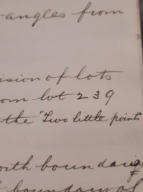 angles from
ision of lots
om lot 239
the "Two little points
orth boundari
boundary of